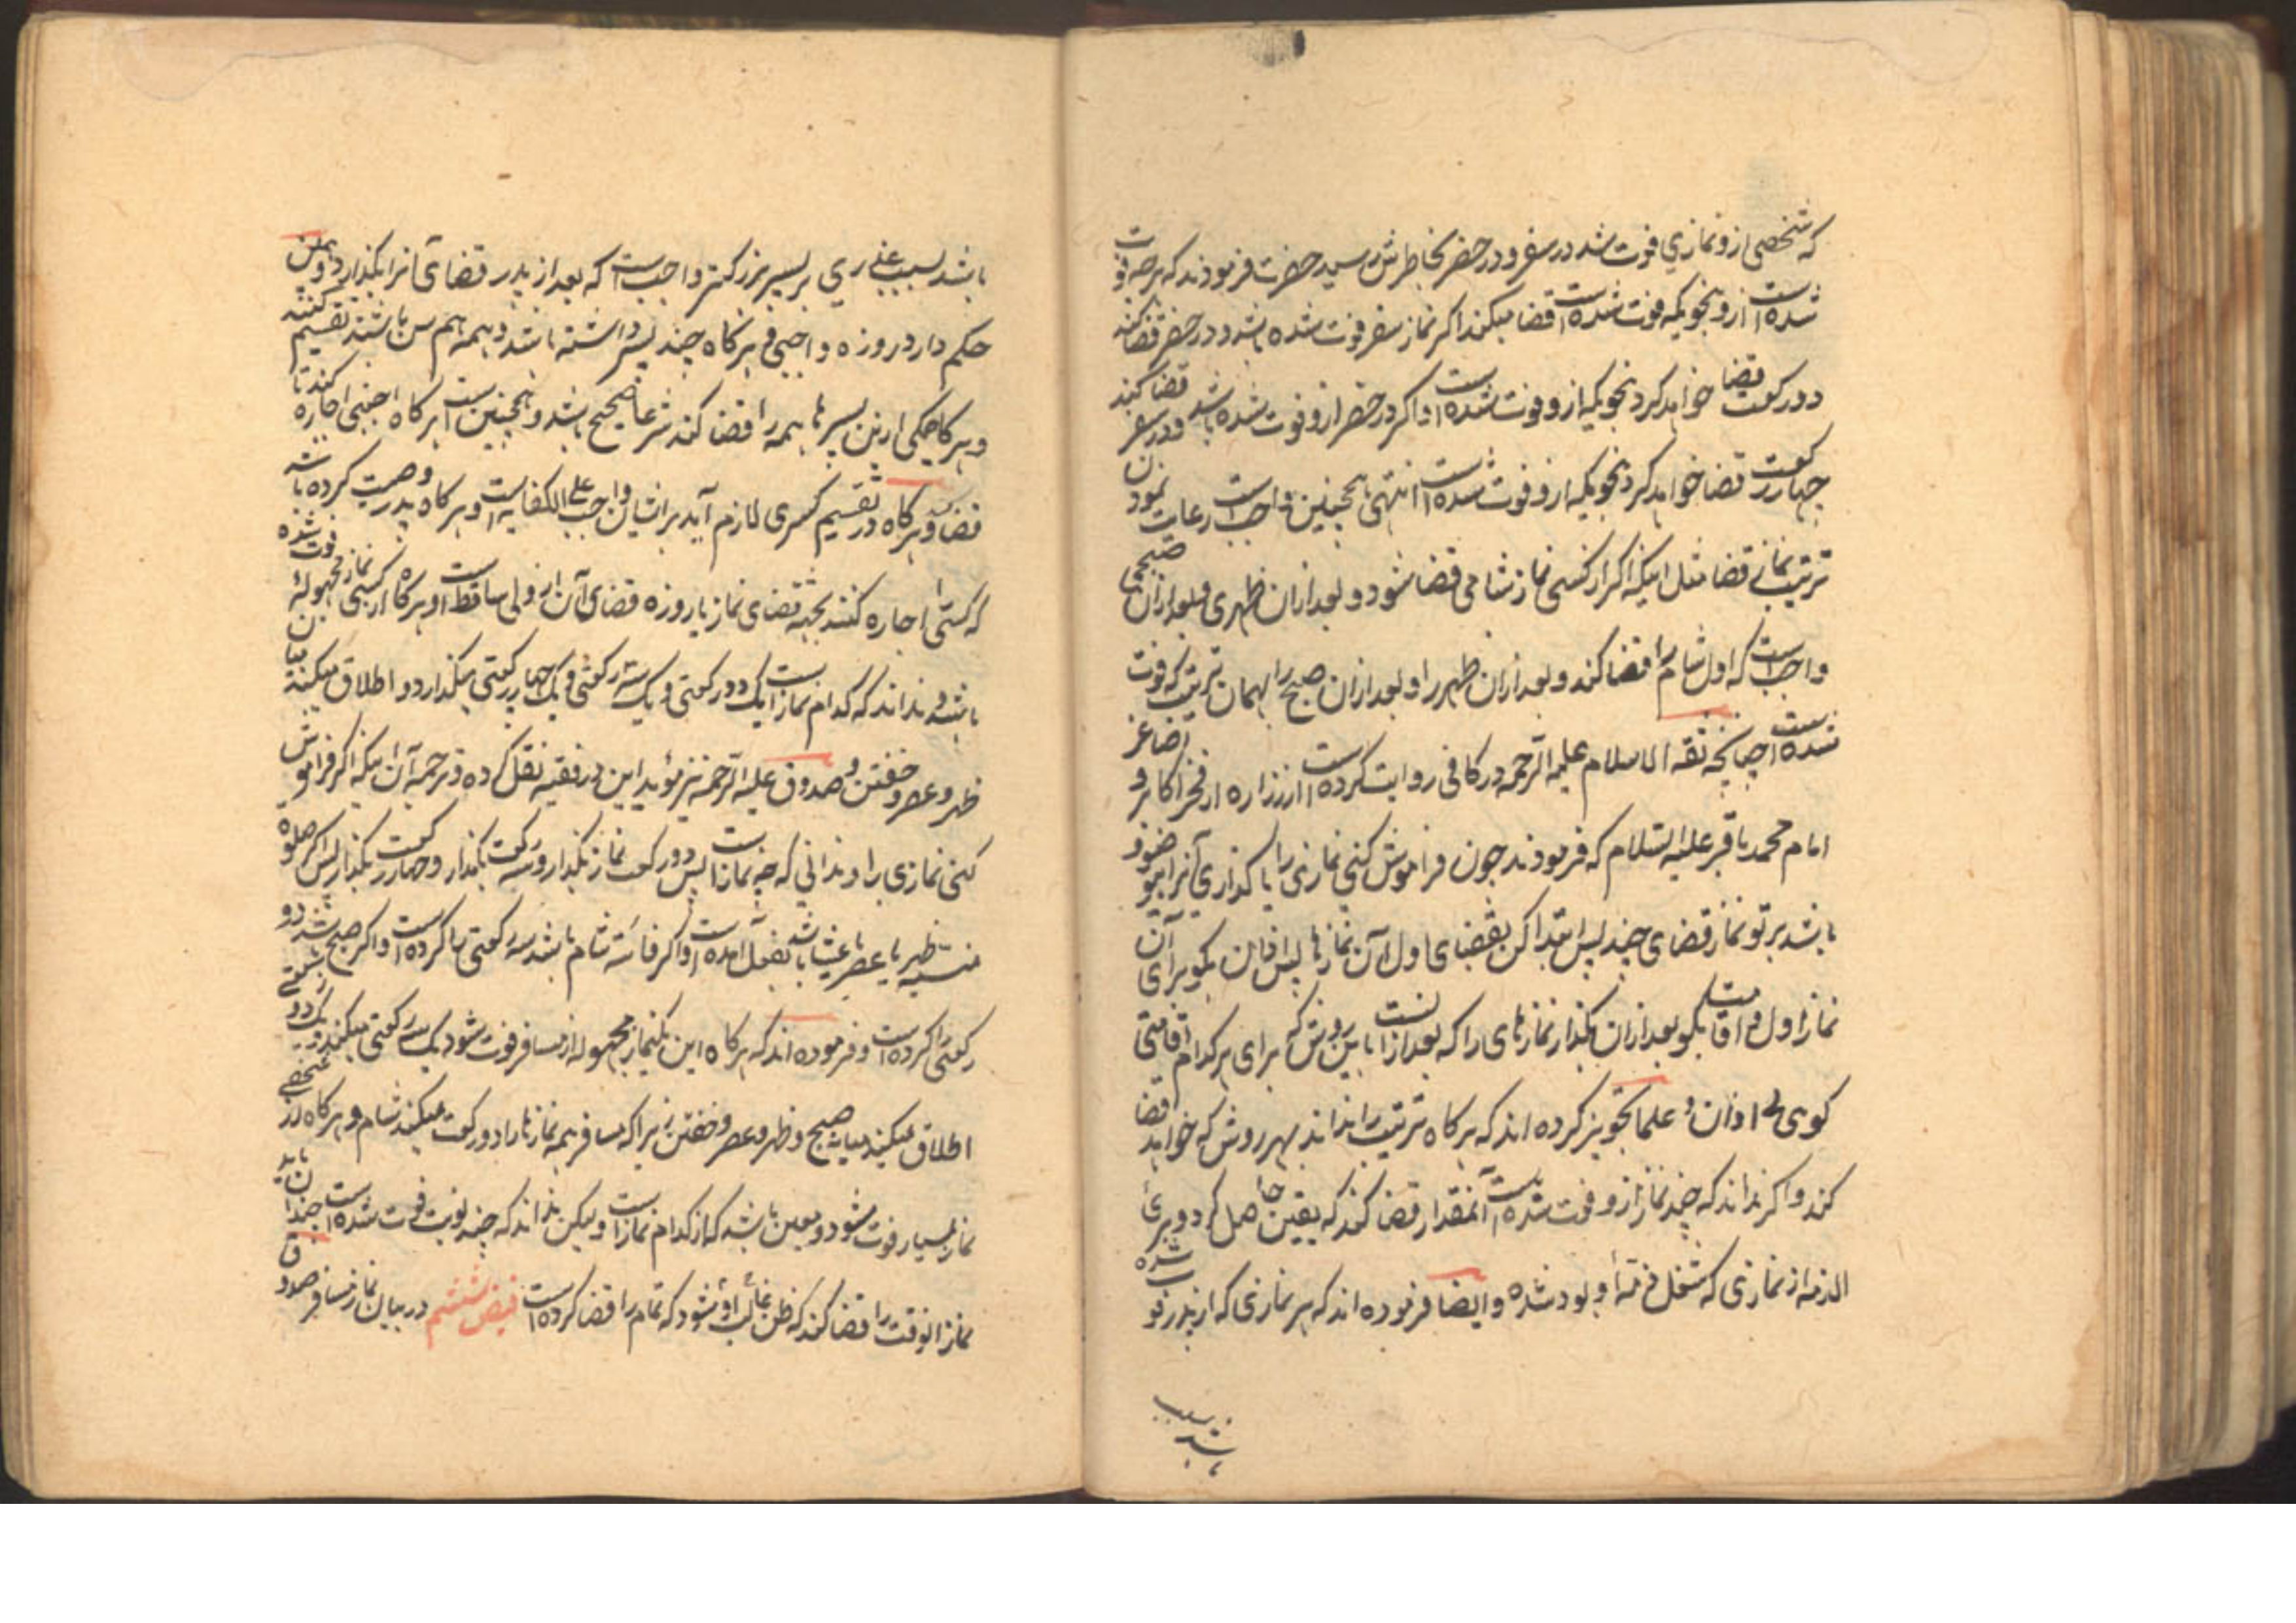 که شخصی ازو نمازی فوت شد در سفر و در حضر بخاطرش رسید حضرت فرمودند که هرچه فوت
شده است ازو بنحویکه فوت شده است قضا میکند اگر نماز سفر فوت شده باشد و در حضر قضا کند
دو رکعت قضا خواهد کرد بنحویکه ازو فوت شده است و اگر در حضر ازو فوت شده باشد و در سفر قضا کند
چهار رکعت قضا خواهد کرد بنحویکه ازو فوت شده است انتهی همچنین واجب است رعایت نمودن
ترتیب نمازهای قضا مثل اینکه اگر از کسی نماز شامی قضا شود و بعد ازان ظهری و بعد ازان صبحی
واجب است که اول شام را قضا کند و بعد ازان ظهر را و بعد ازان صبح را بهمان ترتیب که فوت
شده است چنانچه ثقه الاسلام علیه الرحمه در کافی روایت کرده است از زراره از
امام محمد باقر علیه السلام که فرمودند چون فراموش کنی نمازی را یا گذاری آنرا بی وضو و
باشد بر تو نماز قضای چند پس ابتدا کن بقضای اول آن نمازها پس اذان بگو برای آن
نماز اول و اقامت بگو بعد ازان بگذار نمازهای را که بعد ازانست باین روش که برای هر کدام اقامتی
گوی بی اذان و علما تجویز کرده اند که هرگاه ترتیب را نداند بهر روش که خواهد قضا
کند و اگر نداند که چند نماز ازو فوت شده است آنمقدار قضا کند که یقین حاصل کردد بری
الذمه از نمازی که شغل ذمهٔ او بود شده و ایضا فرموده اند که هر نمازی که از پدر فوت شده
باشد بسبب
باشد بسبب عذری بر پسر بزرگتر واجب است که بعد از پدر قضای آنرا بگذارد و همین
حکم دارد روزه واجبی و هرگاه چند پسر داشته باشد و همه هم سن باشند تقسیم کنند
و هرگاه یکی ازین پسرها همه را قضا کند شرعا صحیح باشد و همچنین است هرگاه اجنبی اجاره کند تا
قضا کند و هرگاه در تقسیم کسری لازم آید بر ایشان واجب علی الکفایه است و هرگاه پدر وصیت کرده باشد
که کسی را اجاره کنند بجهة قضای نماز یا روزه قضای آن از ولی ساقط است و هرگاه از کسی نماز مجهوله فوت شده
باشد و نداند که کدام نماز است یک دو رکعتی و یک سه رکعتی و یک چهار رکعتی میگذارد و اطلاق میکند میان
ظهر و عصر و خفتن و صدوق علیه الرحمه نیز مؤید این در فقیه نقل کرده و ترجمه آن اینکه اگر فراموش
کنی نمازی را و ندانی که چه نماز است پس دو رکعت نماز بگذار و سه رکعت بگذار و چهار رکعت بگذار پس اگر صلوة
منسیه ظهر یا عصر یا عشا باشد بفعل آمده است و اگر فائته شام باشد سه رکعتی ادا کرده است و اگر صبح باشد دو
رکعتی ادا کرده است و فرموده اند که هرگاه این یکنماز مجهوله از مسافر فوت شود یک سه رکعتی میکند و یک دو رکعتی
اطلاق میکند میان صبح و ظهر و عصر و خفتن زیرا که مسافر همه نمازها را دو رکعت میکند شام و هرگاه از شخصی
نماز بسیار فوت شود و معین باشد که از کدام نماز است ولیکن نداند که چند نوبت فوت شده است باید چندان
نماز انوقت را قضا کند که ظن غالب او شود که تمام را قضا کرده است فیض ششم در بیان نماز مسافر صدوق